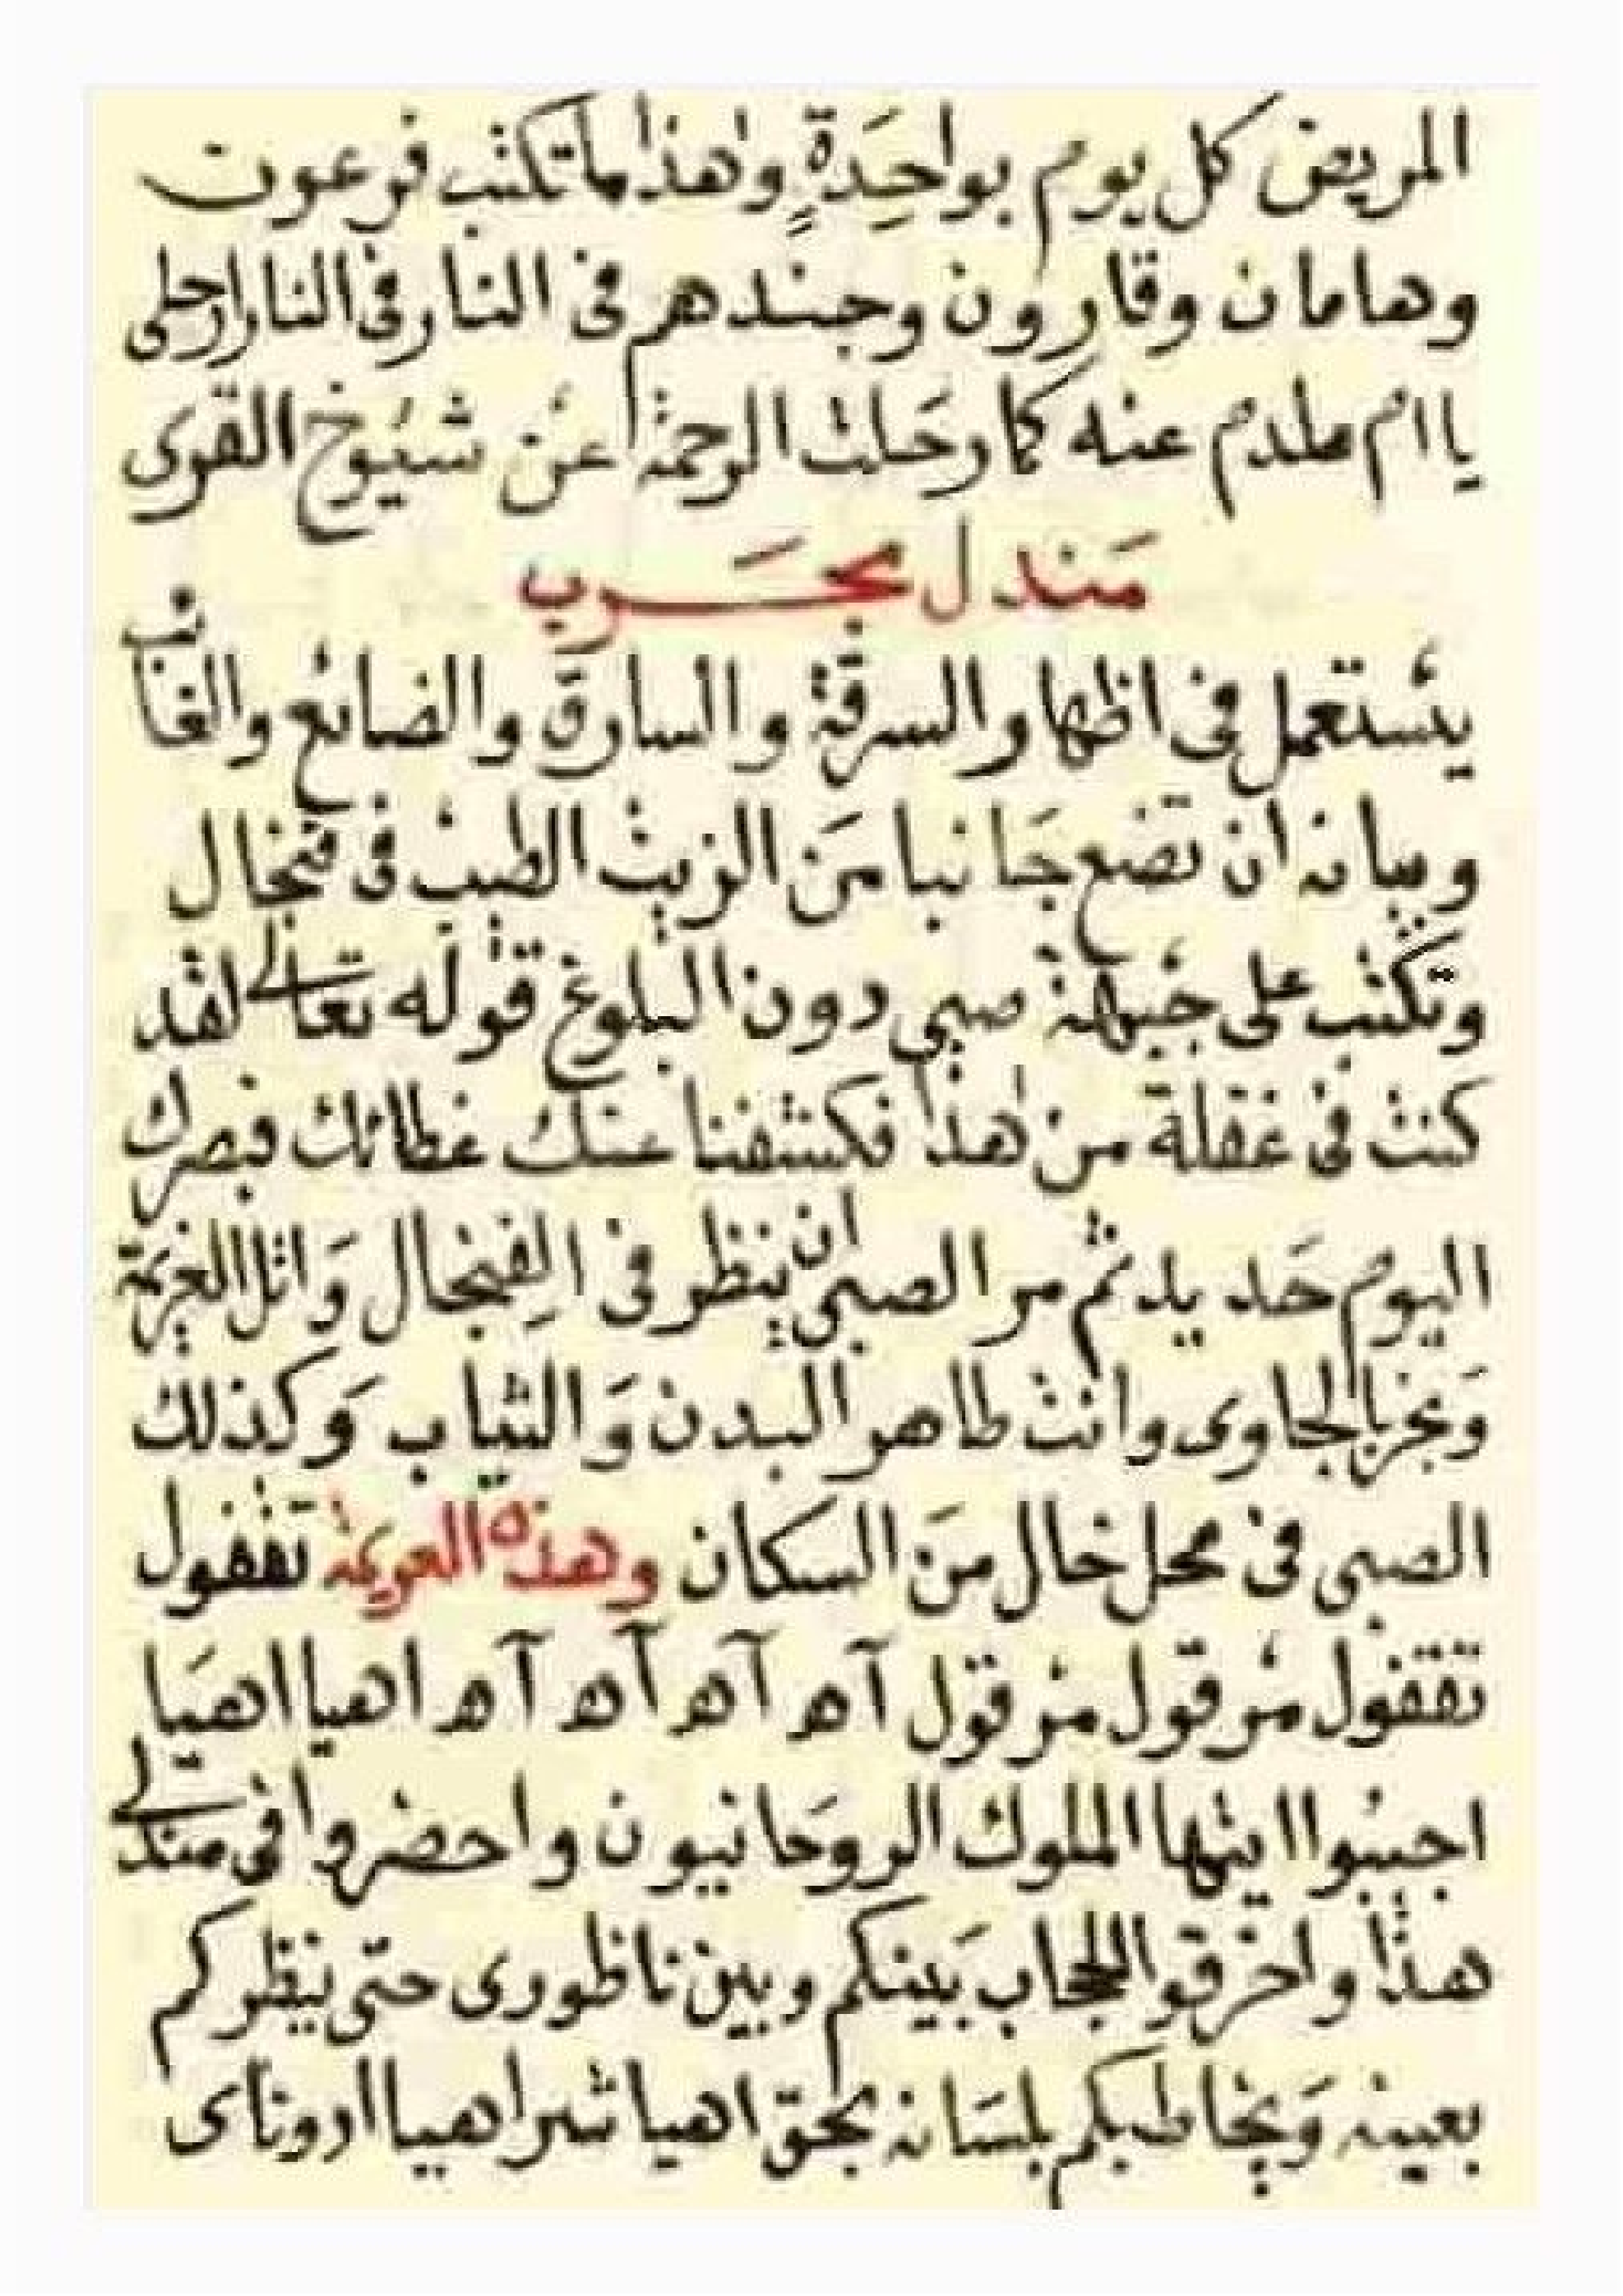 المريض كل يوم بواحِدَةٍ وهذا ما تكتب فرعون
وهامان وقارون وجندهم في النار في النار ارحلي
يا ام ملدم عنه كما رحَلت الرحمة عن شيوخ القرى
مَندل مجَرب
يستعمل في اظهار السرقة والسارق والضائع والغائب
وبيانه ان تضع جَانبا مَن الزيت الطيب في فنجال
وتكتب على جبهة صبي دون البلوغ قوله تعالى لقد
كنت في غفلة من هذا فكشفنا عنك غطائك فبصرك
اليوم حَديد ثم مر الصبي ان ينظر في الفِنجال وَاتل العزيمة
وَبخر بالجاوى وانت طاهر البدن وَالثياب وَكذلك
الصبى في محل خال مَن السكان وهذه العزيمة تقفول
تقفول مرقول مرقول آه آه آه آه اهيا اهيَا
اجيبوا ايتها الملوك الروحَانيون واحضروا في مندلى
هذا واخرقوا الحجاب بَينكم وبين ناظورى حتى ينظركم
بعينه وَيخاطبكم بلسَانه بحق اهيا شراهيا ادوناى